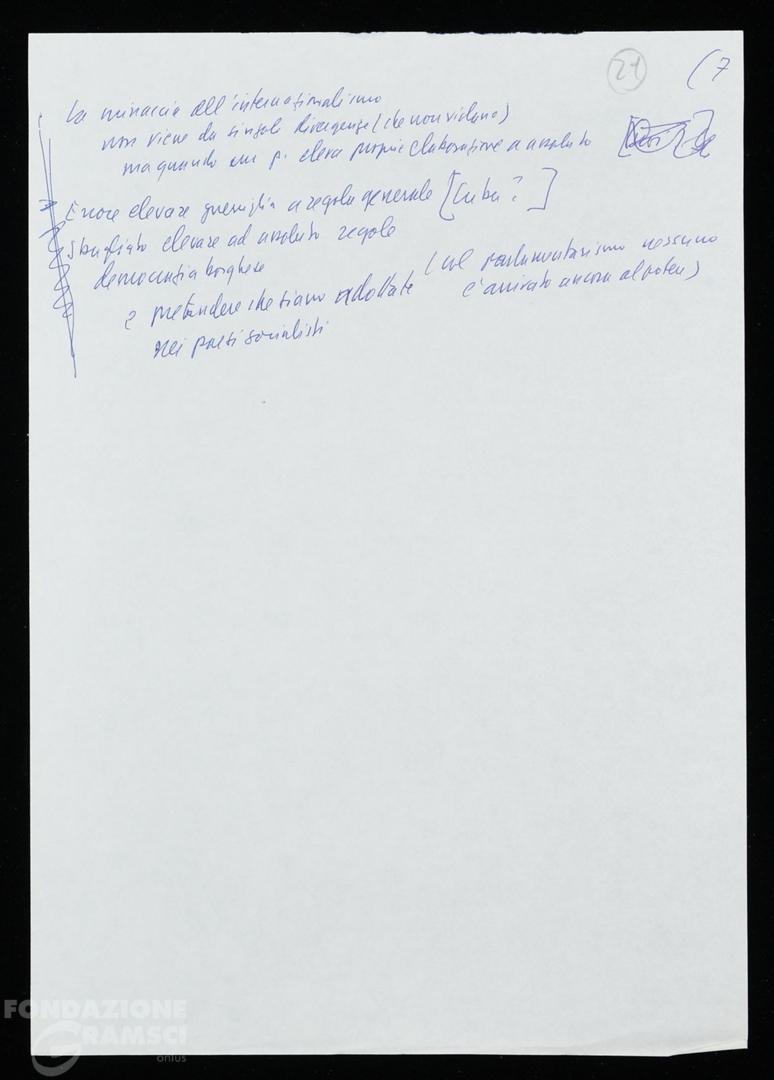 21
(7
La minaccia all'internazionalismo
non viene da singole divergenze (che non vi deno)
ma quando un p. eleva proprie elaborazione a assoluto
Errore elevare guerriglia a regola generale [Cuba?]
Sbagliato elevare ad assoluto regole
democrazia borghese
(col parlamentarismo nessuno
è arrivato ancora al potere)
e pretendere che siano adottate
nei paesi socialisti
FONDAZIONE
GRAMSCI
onlus